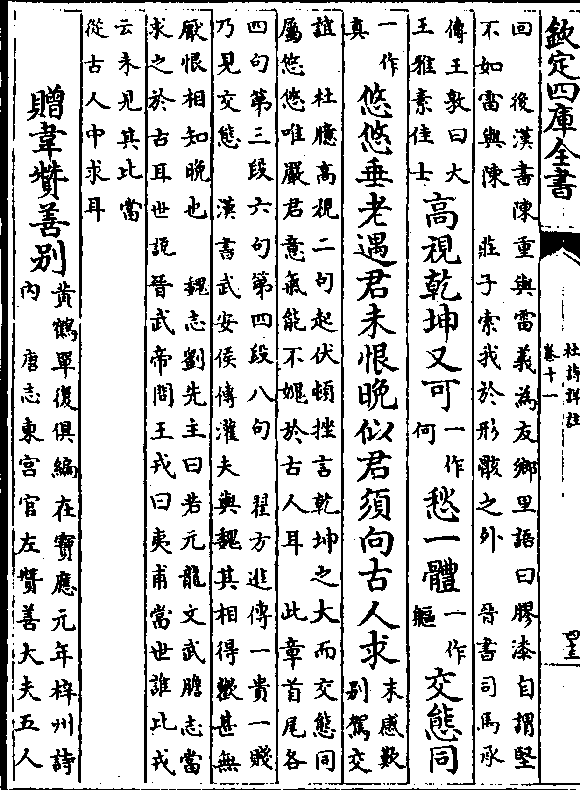 欽定四庫全書
杜詩詳註
卷十一
四三
回　後漢書陳重與雷義為友鄉里語曰膠漆自謂堅
不如雷與陳　莊子索我於形骸之外　晉書司馬承
傳王敦曰大
王雅素佳士
高視乾坤又可一作何愁一體一作軀交態同
一作真悠悠垂老遇君未恨晚似君須向古人求
末感歎
別駕交
誼　杜臆高視二句起伏頓挫言乾坤之大而交態同
屬悠悠唯嚴君意氣能不媿於古人耳　此章首尾各
四句第三段六句第四段八句　翟方進傳一貴一賤
乃見交態　漢書武安侯傳灌夫與魏其相得驩甚無
厭恨相知晚也　魏志劉先主曰若元龍文武膽志當
求之於古耳世說晉武帝問王戎曰夷甫當世誰比戎
云未見其比當
從古人中求耳
贈韋贊善別
黃鶴單復俱編在寶應元年梓州詩
內　唐志東宮官左贊善大夫五人